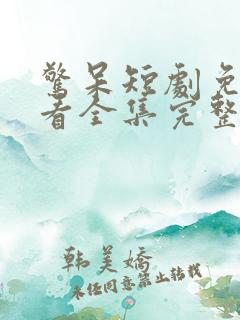 驚呆短劇免
看全集完整
韩美娇
未经同意禁止转载